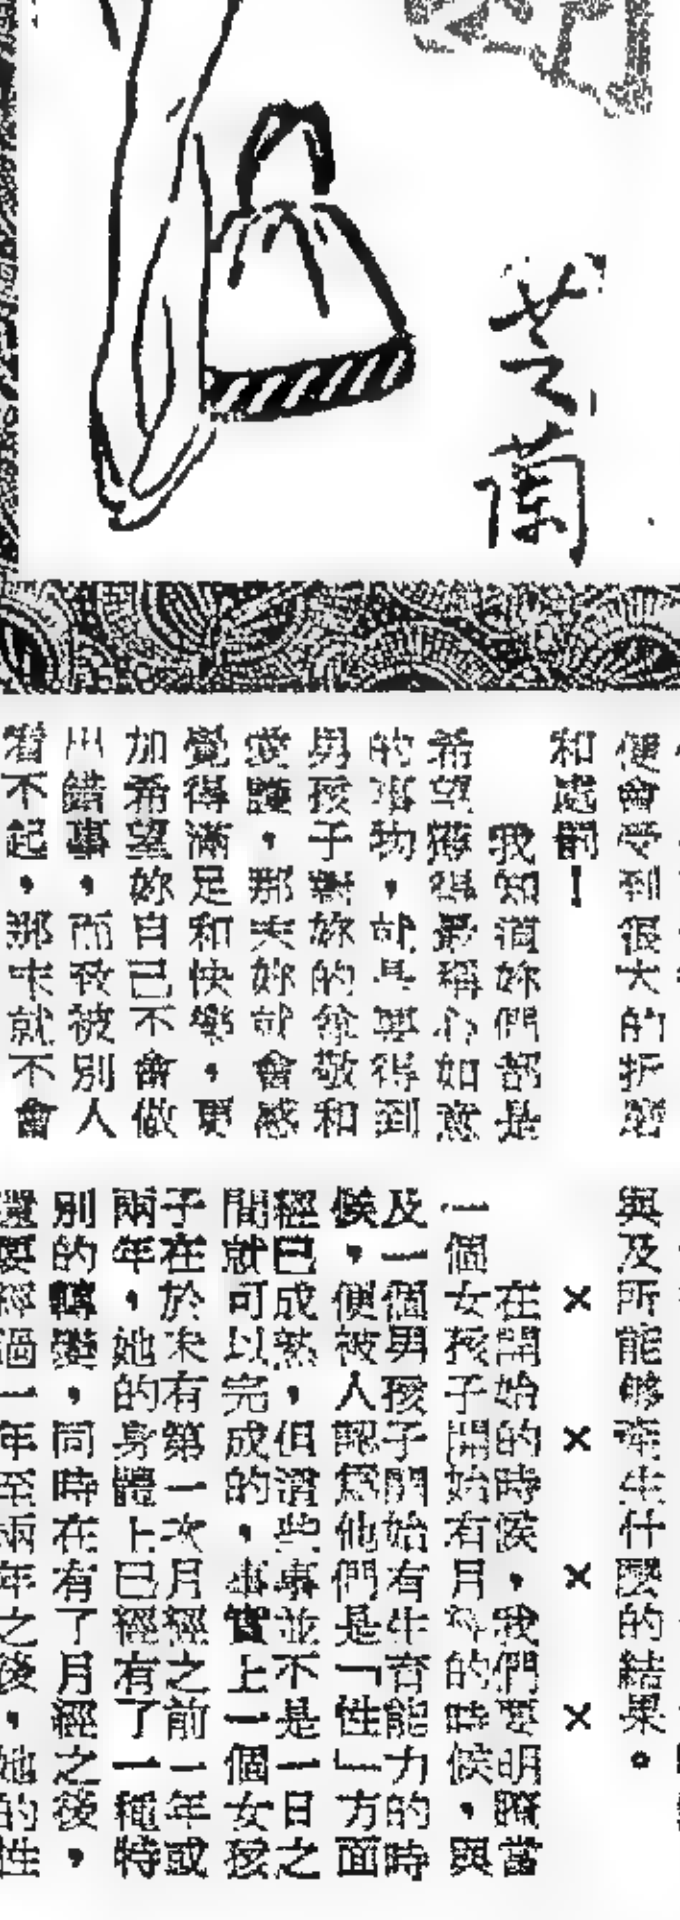 芝蘭
便會受到很大的折磨
和處罰！
我知道妳們都是
希望獲得最稱心如意
的事物，就是要得到
男孩子對妳的尊敬和
愛護，那末妳就會感
覺得滿足和快樂，更
加希望妳自已不會做
出錯事，而致被別人
看不起，那末就不會
與及所能夠產生什麼的結果。
××××
在開始的時候，我們要明瞭當
一個女孩子開始有月經的時候，與
及一個男孩子開始有生育能力的時
候，便被人認爲他們是「性」方面
經已成熟，但這些事並不是一日之
間就可以完成的，事實上一個女孩
子在於未有第一次月經之前一年或
兩年，她的身體上已經有了一種特
別的轉變，同時在有了月經之後，
還要經過一年至兩年之後，她的性